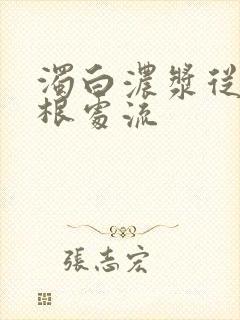 濁白濃漿從
根處流
張志宏